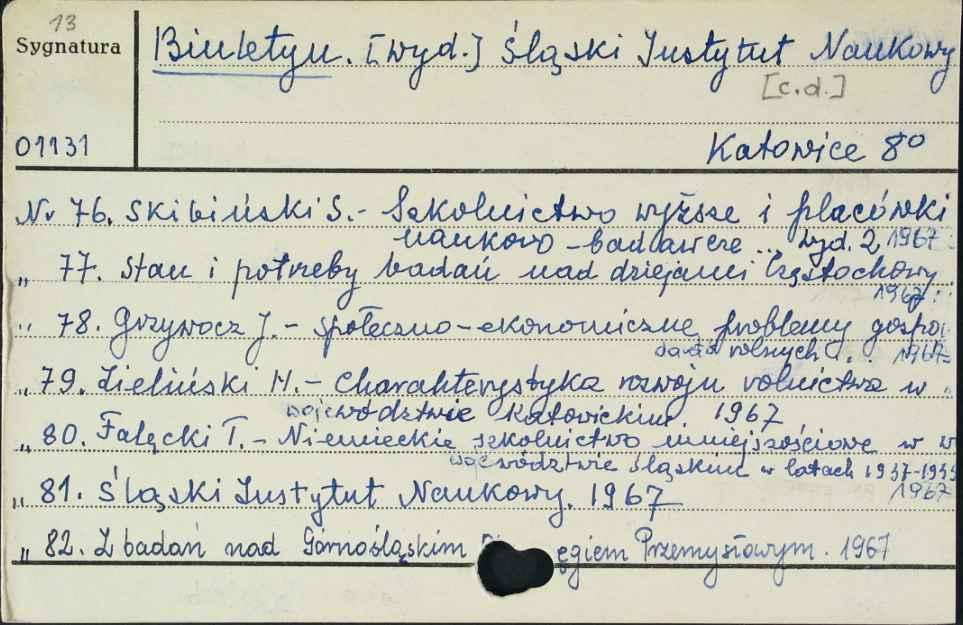 13
Sygnatura
Biuletyn. [wyd.] Śląski Instytut Naukowy
[c.d.]
01131
Katowice 8º
Nr 76. Skibiński S.- Szkolnictwo wyższe i placówki
naukowo-badawcze ... wyd. 2, 1967
„ 77. Stan i potrzeby badań nad dziejami Częstochowy
1967.
„ 78. Grzywocz J.- Społeczno-ekonomiczne problemy gospo
darstw rolnych ... 1967
„ 79. Zieliński H.- Charakterystyka rozwoju rolnictwa w
województwie katowickim. 1967
„ 80. Falęcki T.- Niemieckie szkolnictwo mniejszościowe w w
województwie śląskim w latach
1967
„ 81. Śląski Instytut Naukowy. 1967
„ 82. Z badań nad Górnośląskim ęgiem Przemysłowym. 1967